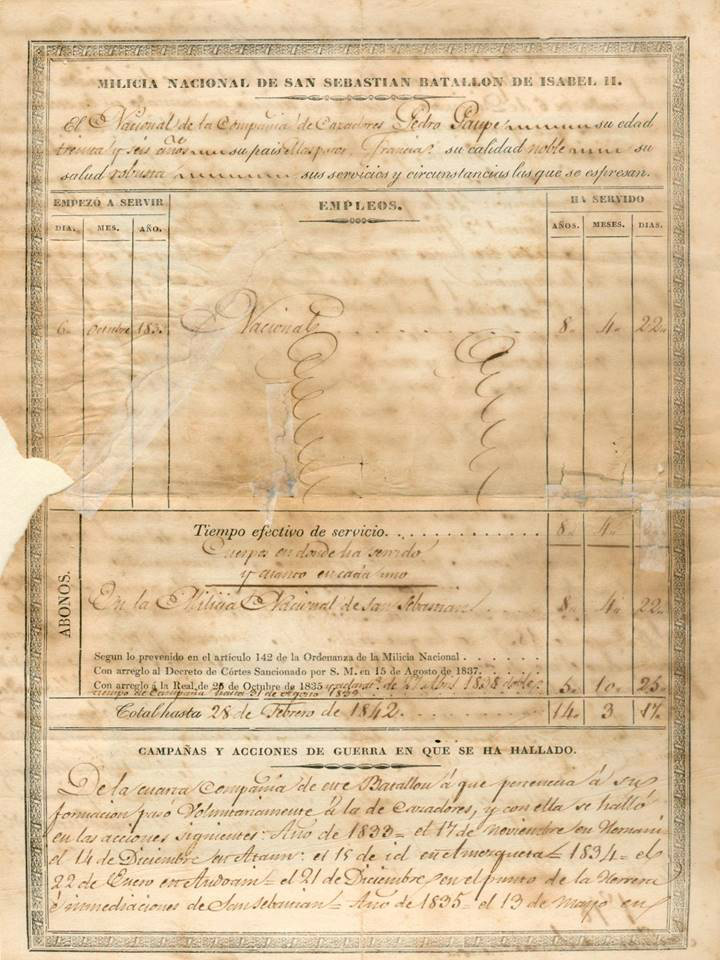 MILICIA NACIONAL DE SAN SEBASTIAN BATALLON DE ISABEL II.
El Nacional de la Compañia de Cazadores Pedro su edad
treinta y seis años su pais Francia su calidad noble su
salud robusta sus servicios y circunstancias las que se espresan.
EMPEZÓ A SERVIR
EMPLEOS.
HA SERVIDO
DIA. MES. AÑO.
AÑOS. MESES. DIAS.
6 Octubre 183 Nacional 8 4 22
Tiempo efectivo de servicio. 8 4
Cuerpos en donde ha servido
y cuanto en cada uno
ABONOS.
En la Milicia Nacional de San Sebastian 8 4 22
Segun lo prevenido en el artículo 142 de la Ordenanza de la Milicia Nacional
Con arreglo al Decreto de Córtes Sancionado por S. M. en 15 de Agosto de 1837.
Con arreglo á la Real de 25 de Octubre de 1835 de 1838 doble 5 10 25
tiempo de Campaña hasta 31 de Agosto 1839
Total hasta 28 de Febrero de 1842. 14 3 17
CAMPAÑAS Y ACCIONES DE GUERRA EN QUE SE HA HALLADO.
De la cuarta Compañia de este Batallon á que pertenecia á su
formacion pasó Voluntariamente á la de Cazadores, y con ella se halló
en las acciones siguientes: Año de 1833 = el 17 de noviembre en Hernani
el 14 de Diciembre en el 15 de id en 1834 = el
22 de Enero en Andoain = el 21 de Diciembre en el punto de la Herrera
é inmediaciones de San Sebastian = Año de 1835 = el 13 de mayo en